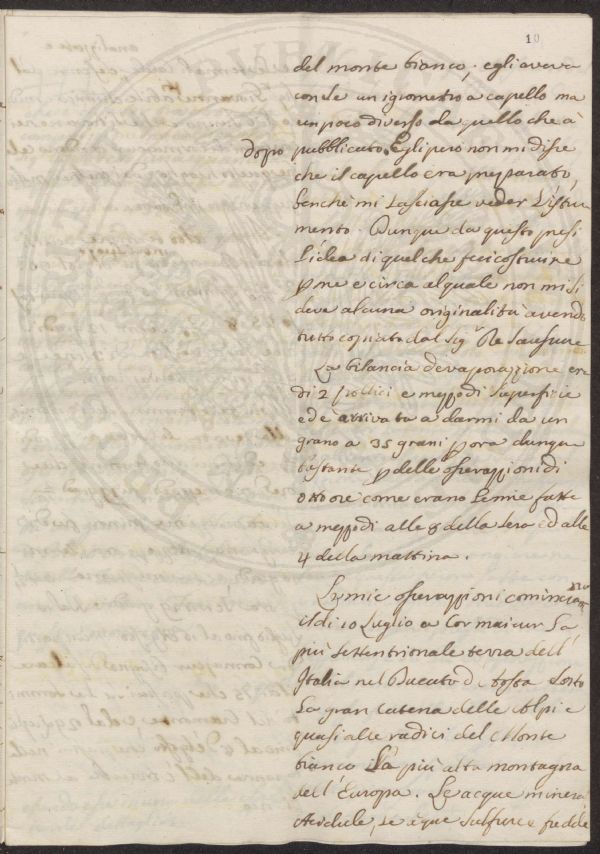 10
del monte bianco, egli aveva
con se un igrometro a capello ma
un poco diverso da quello che à
dopo pubblicato. Egli pero non mi disse
che il capello era preparato,
benche mi Lasciasse veder L'istru
mento. Dunque da questo presi
L'idea di quel che feci costruire
p me e circa al quale non mi si
deve alcuna originalità avendo
tutto copiato dal Sig.r De Saussure
La bilancia d'evaporazzione era
di 2 pollici e mezzo di superficie
ed è arrivata a darmi da un
grano a 35 grani p ora dunque
bastante p delle operazzioni di
otto ore come erano Le mie fatte
a mezzodi alle 8 della sera ed alle
4 della mattina.
Le mie operazzioni cominciarono
il di 10 Luglio a Cormaieur La
più settentrionale terra dell'
Italia nel Ducato d'Aosta sotto
La gran catena delle Alpi e
quasi alle radici del Monte
bianco La più alta montagna
dell'Europa. Le acque minerali
Acidule, Le aque sulfuree fredde